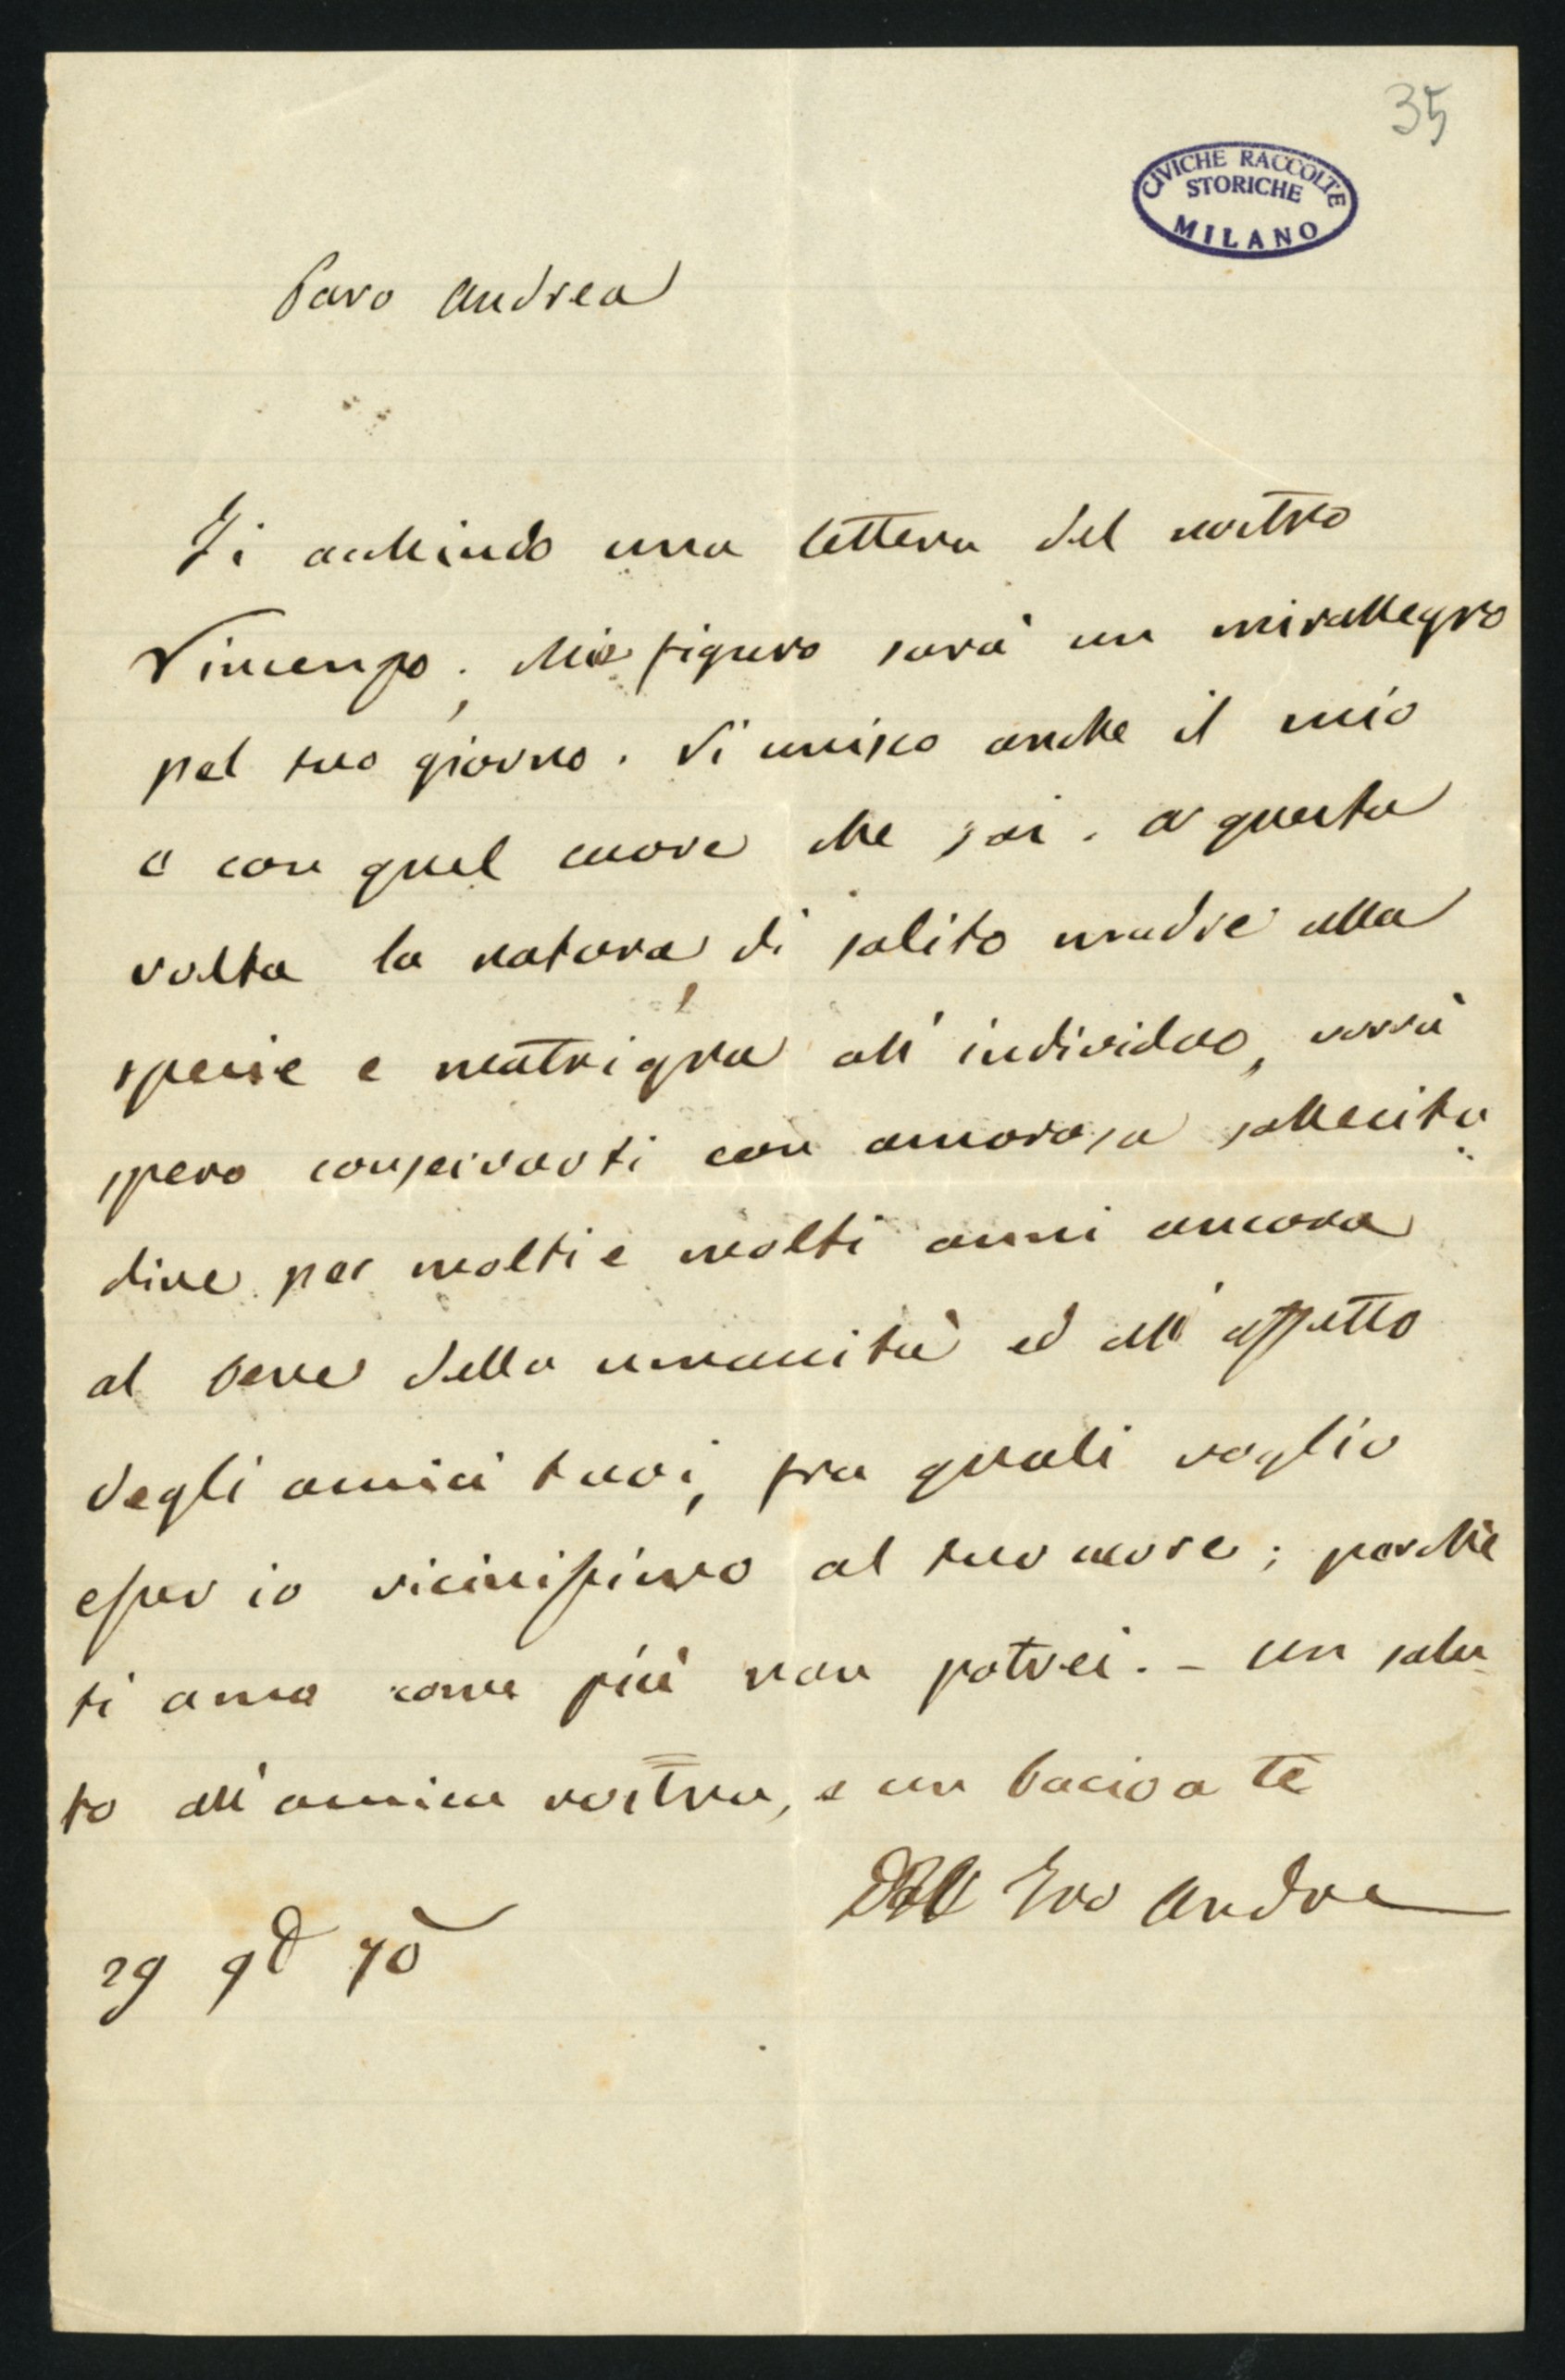 35
CIVICHE RACCOLTE
STORICHE
MILANO
Caro Andrea
Ti acchiudo una lettera del nostro
Vincenzo; Mi figuro sarà un mirallegro
pel tuo giorno. Vi unisco anche il mio
e con quel cuore che sai. A questa
volta la natura di solito madre alla
specie e matrigna all'individuo, vorrà
spero conservarti con amorosa sollecitu
dine per molti e molti anni ancora
al bene della umanità ed all'affetto
degli amici tuoi, fra quali voglio
esser io vicinissimo al tuo cuore; perchè
ti amo come più non potrei. - Un salu
to all'amica nostra, e un bacio a te
Tuo Andrea
29 9b 70